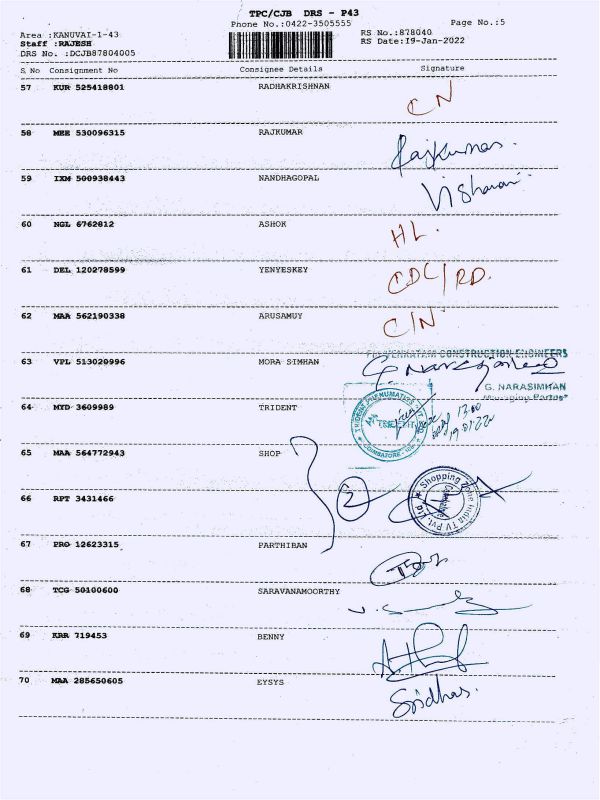 TPC/CJB DRS - P43
Phone No.:0422-3505555
Page No.:5
Area :KANUVAI-1-43
Staff :RAJESH
DRS No. :DCJB87804005
RS No.:878040
RS Date:19-Jan-2022
S.No Consignment No Consignee Details Signature
57 KUR 525418801 RADHAKRISHNAN CN
58 MEE 530096315 RAJKUMAR Rajkumar.
59 IXM 500938443 NANDHAGOPAL
60 NGL 6762812 ASHOK HL.
61 DEL 120278599 YENYESKEY CDC/RD.
62 MAA 562190338 ARUSAMUY C/N
CONSTRUCTION ENGINEERS
63 VPL 513020996 MORA SIMHAN
G. NARASIMHAN
Managing Partner
64 MYD 3609989 TRIDENT
TRIDENT PNEUMATICS
COIMBATORE
13.00
19.01.22
65 MAA 564772943 SHOP
66 RPT 3431466 2
Shopping Zone India TV Pvt. Ltd.
67 PRO 12623315 PARTHIBAN
68 TCG 50100600 SARAVANAMOORTHY
69 KRR 719453 BENNY
70 MAA 285650605 EYSYS Sridhar.